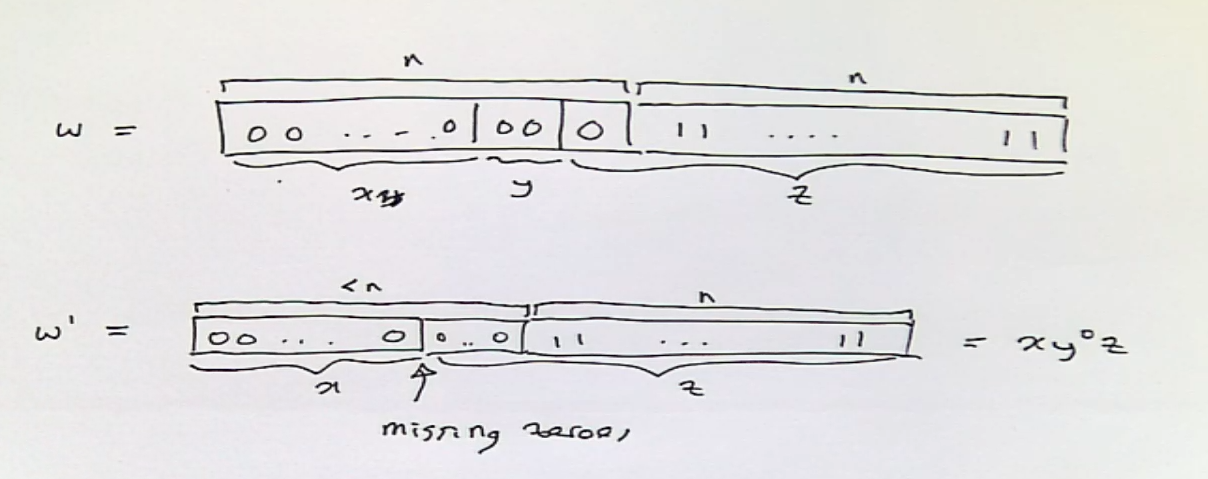 n n
w = 0 0 ... - . 0 | 0 0 | 0 | 1 1 .... 1 1
x y z
< n n
w' = 0 0 ... 0 | 0 .. 0 | 1 1 ... 1 1 = xy⁰z
x z
missing zeroes,